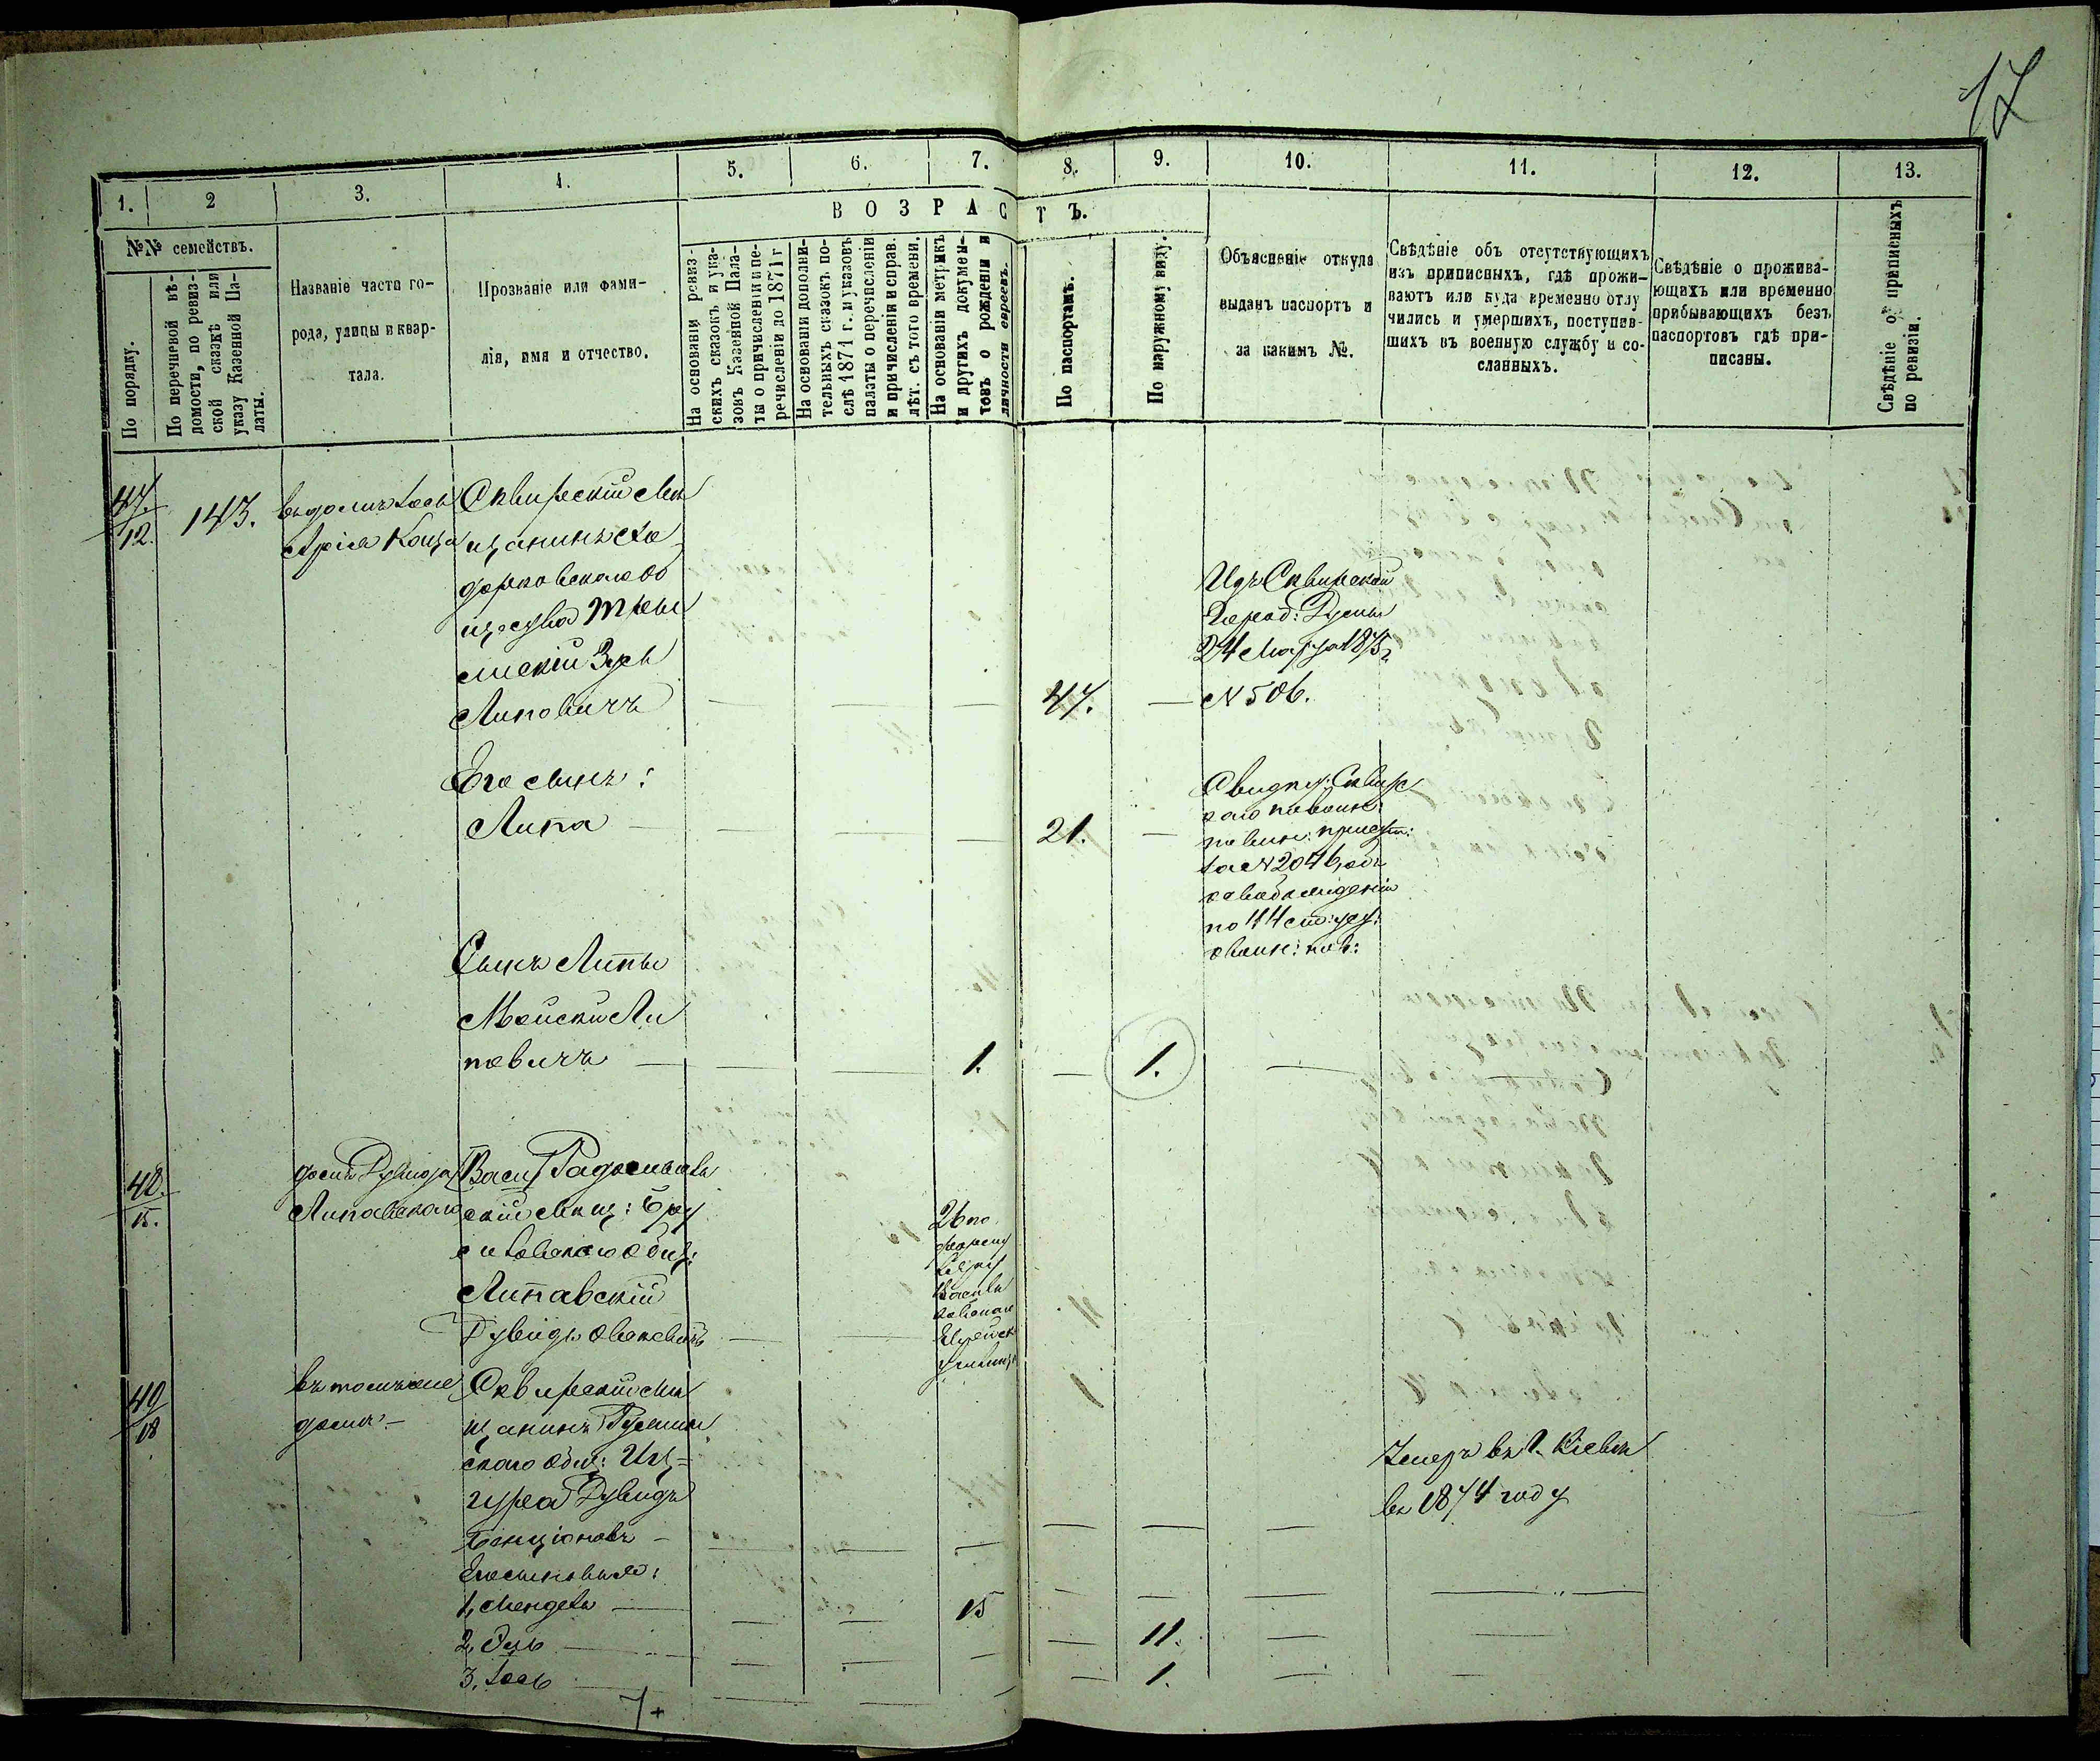 17
1. 2 3. 4. 5. 6. 7. 8. 9. 10. 11. 12. 13.
№№ семействъ.
По порядку.
По перечневой вѣ-
домости, по ревиз-
ской сказкѣ или
указу Казенной Па-
латы.
Названіе части го-
рода, улицы и квар-
тала.
Прозваніе или фами-
лія, имя и отчество.
ВОЗРАСТЪ.
На основаніи ревиз-
скихъ сказокъ и ука-
зовъ Казенной Пала-
ты о причисленіи и пе-
речисленіи до 1871 г
На основаніи дополни-
тельныхъ сказокъ по-
слѣ 1871 г. и указовъ
палаты о перечисленіи
и причисленіи и справ.
лѣт. съ того времени.
На основаніи метрикъ
и другихъ докумен-
товъ о рожденіи и
личности евреевъ.
По паспортамъ.
По наружному виду.
Объясненіе откуда
выданъ паспортъ и
за какимъ №.
Свѣдѣніе объ отсутствующихъ
изъ приписныхъ, гдѣ прожи-
ваютъ или куда временно отлу
чились и умершихъ, поступив-
шихъ въ военную службу и со-
сланныхъ.
Свѣдѣніе о прожива-
ющихъ или временно
прибывающихъ безъ
паспортовъ гдѣ при-
писаны.
Свѣдѣніе о приписныхъ
по ревизіи.
47.
12.
143.
Сквирскій мѣ
щанинъ Хо
дорковскаго об
щества
Зусь
Липовичъ
47.
Изъ Сквирской
Город: Думы
24 Марта 1875 г.
N 506.
Его сынъ:
Липа
21.
Свидѣт: Сквирс
каго по воинс:
повин: присут:
за N 2046, объ
освобожденіи
по 44 ст: уст:
о воин: пов:
Сынъ Липы
Мойски Ли
повичъ
1.
1.
48.
15.
домъ Дувида
Липавскаго
Вас
скій мѣщ:
Общ:
Липавскій
Дувидъ
26 по
49
18
въ томъ же
домѣ
Сквирскій мѣ
щанинъ
скаго Общ:
Дувидъ
Бенціоновъ
Его сыновья:
1, Мендель 15
2, 11.
3, 1.
Теперь въ г. Кіевѣ
въ 1874 году
7+